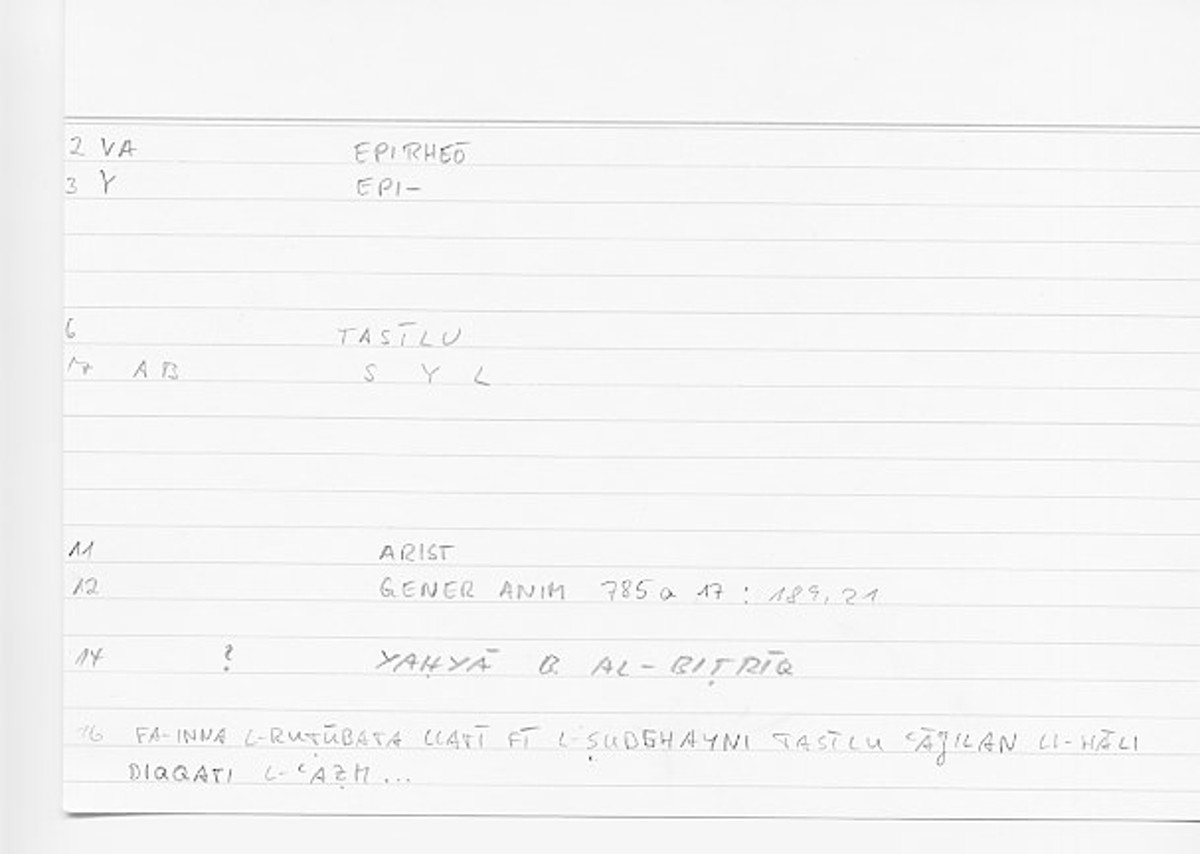 2 VA EPIRHEŌ
3 Y EPI-
6 TASĪLU
17 AB S Y L
11 ARIST
12 GENER ANIM 785a 17 : 189,21
14 ? YAḤYĀ B. AL-BIṬRĪQ
16 FA-INNA L-RUṬŪBATA LLATĪ FĪ L-ṢUDGHAYNI TASĪLU ʿĀǦILAN LI-ḤĀLI
DIQQATI L-ʿAẒM...